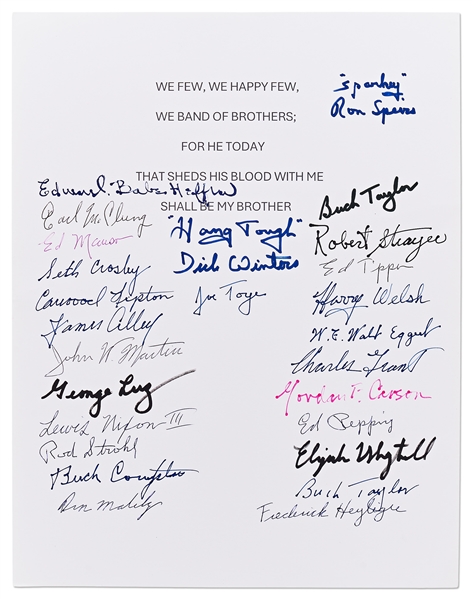 WE FEW, WE HAPPY FEW,
"Sparkey"
Ron Speirs
WE BAND OF BROTHERS;
FOR HE TODAY
THAT SHEDS HIS BLOOD WITH ME
SHALL BE MY BROTHER
Edward "Babe" Heffron
Earl McClung
Ed Mauser
Seth Crosby
Carwood Lipton
James Alley
John W. Martin
George Luz
Lewis Nixon III
Rod Strohl
Buck Compton
Don Malarkey
"Hang Tough"
Dick Winters
Joe Toye
Buck Taylor
Robert Strayer
Ed Tipper
Harry Welsh
W. E. Walt Eggert
Charles Grant
Gordon F. Carson
Ed Pepping
Elijah Whytsell
Buck Taylor
Frederick Heyliger